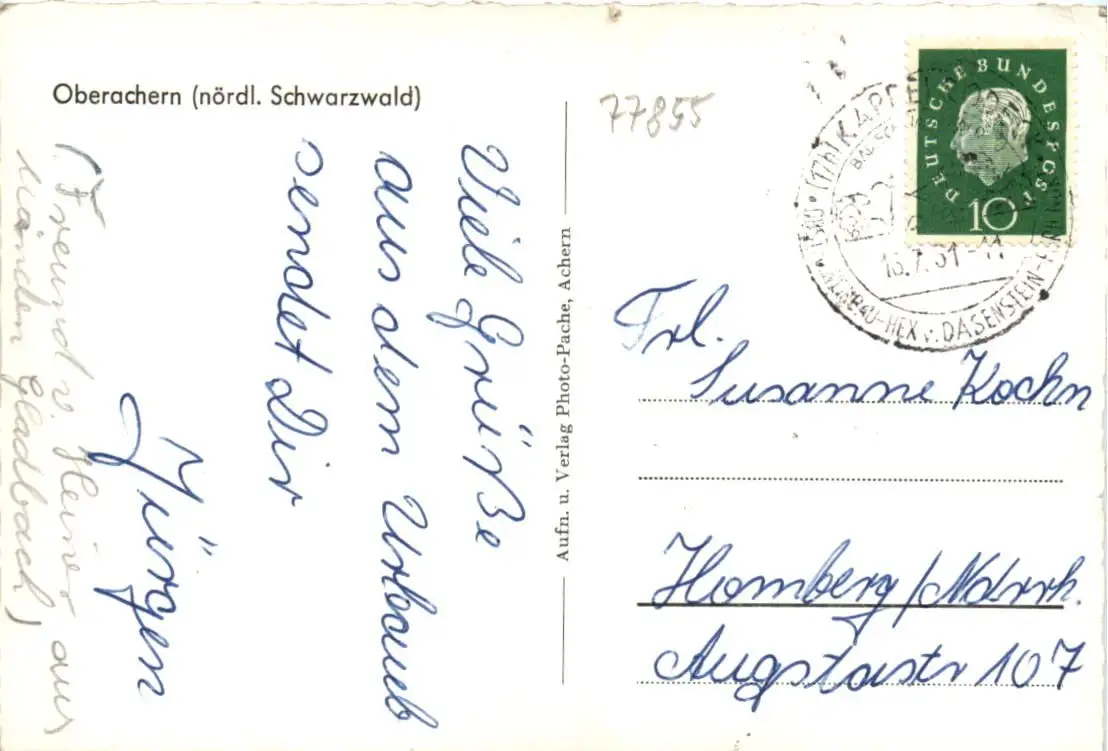 Oberachern (nördl. Schwarzwald)
Viele Grüße
aus dem Urlaub
sendet Dir
Jürgen
(Freund v. Heiner aus
Mönchen Gladbach)
Aufn. u. Verlag Photo-Pache, Achern
77855
DEUTSCHE BUNDESPOST
10
(17b) KAPPEL
-7.61-11
HEX v. DASENSTEIN
Frl.
Susanne Kochn
Homberg/Ndrrh.
Augstastr 107